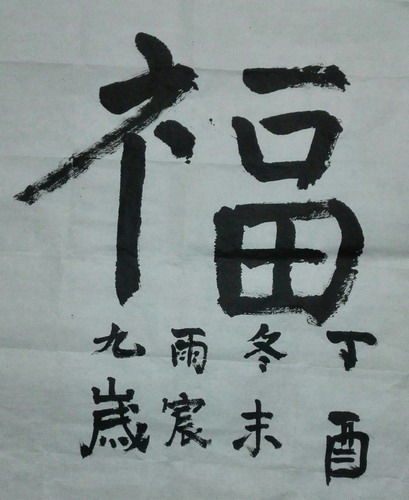 福
丁酉
冬末
雨宸
九歲